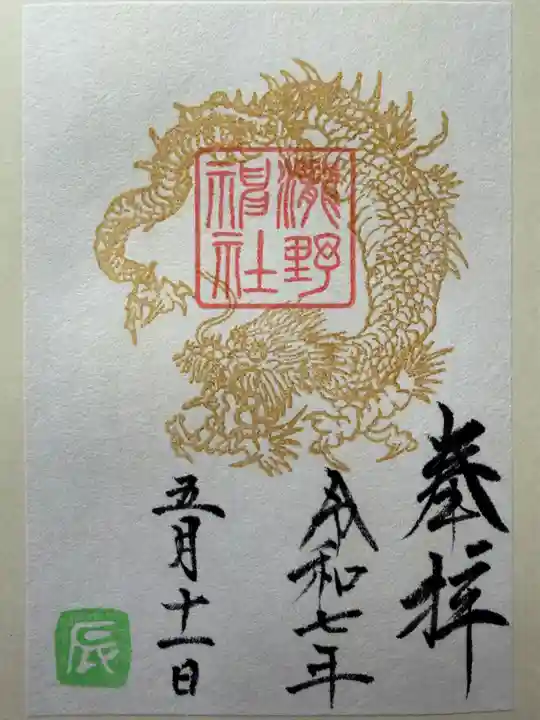 奉拝
令和七年
五月十一日
瀧野
神社
辰